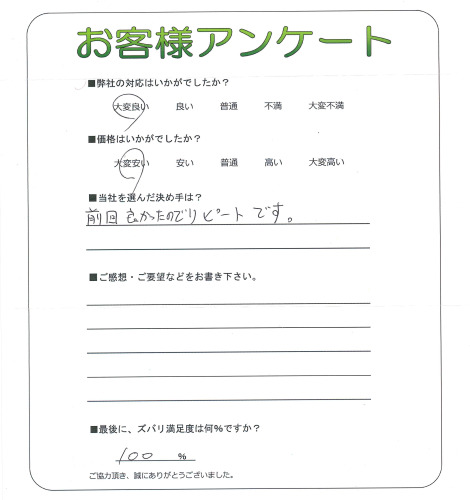 お客様アンケート
■弊社の対応はいかがでしたか？
大変良い 良い 普通 不満 大変不満
■価格はいかがでしたか？
大変安い 安い 普通 高い 大変高い
■当社を選んだ決め手は？
前回良かったのでリピートです。
■ご感想・ご要望などをお書き下さい。
■最後に、ズバリ満足度は何%ですか？
100 %
ご協力頂き、誠にありがとうございました。